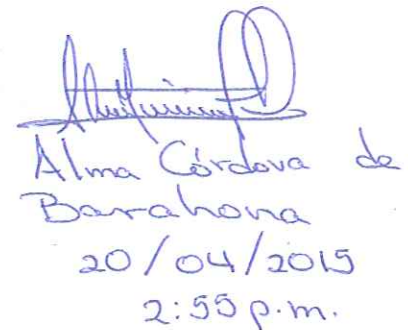 Alma Córdova de
Barahona
20/04/2015
2:55 p.m.